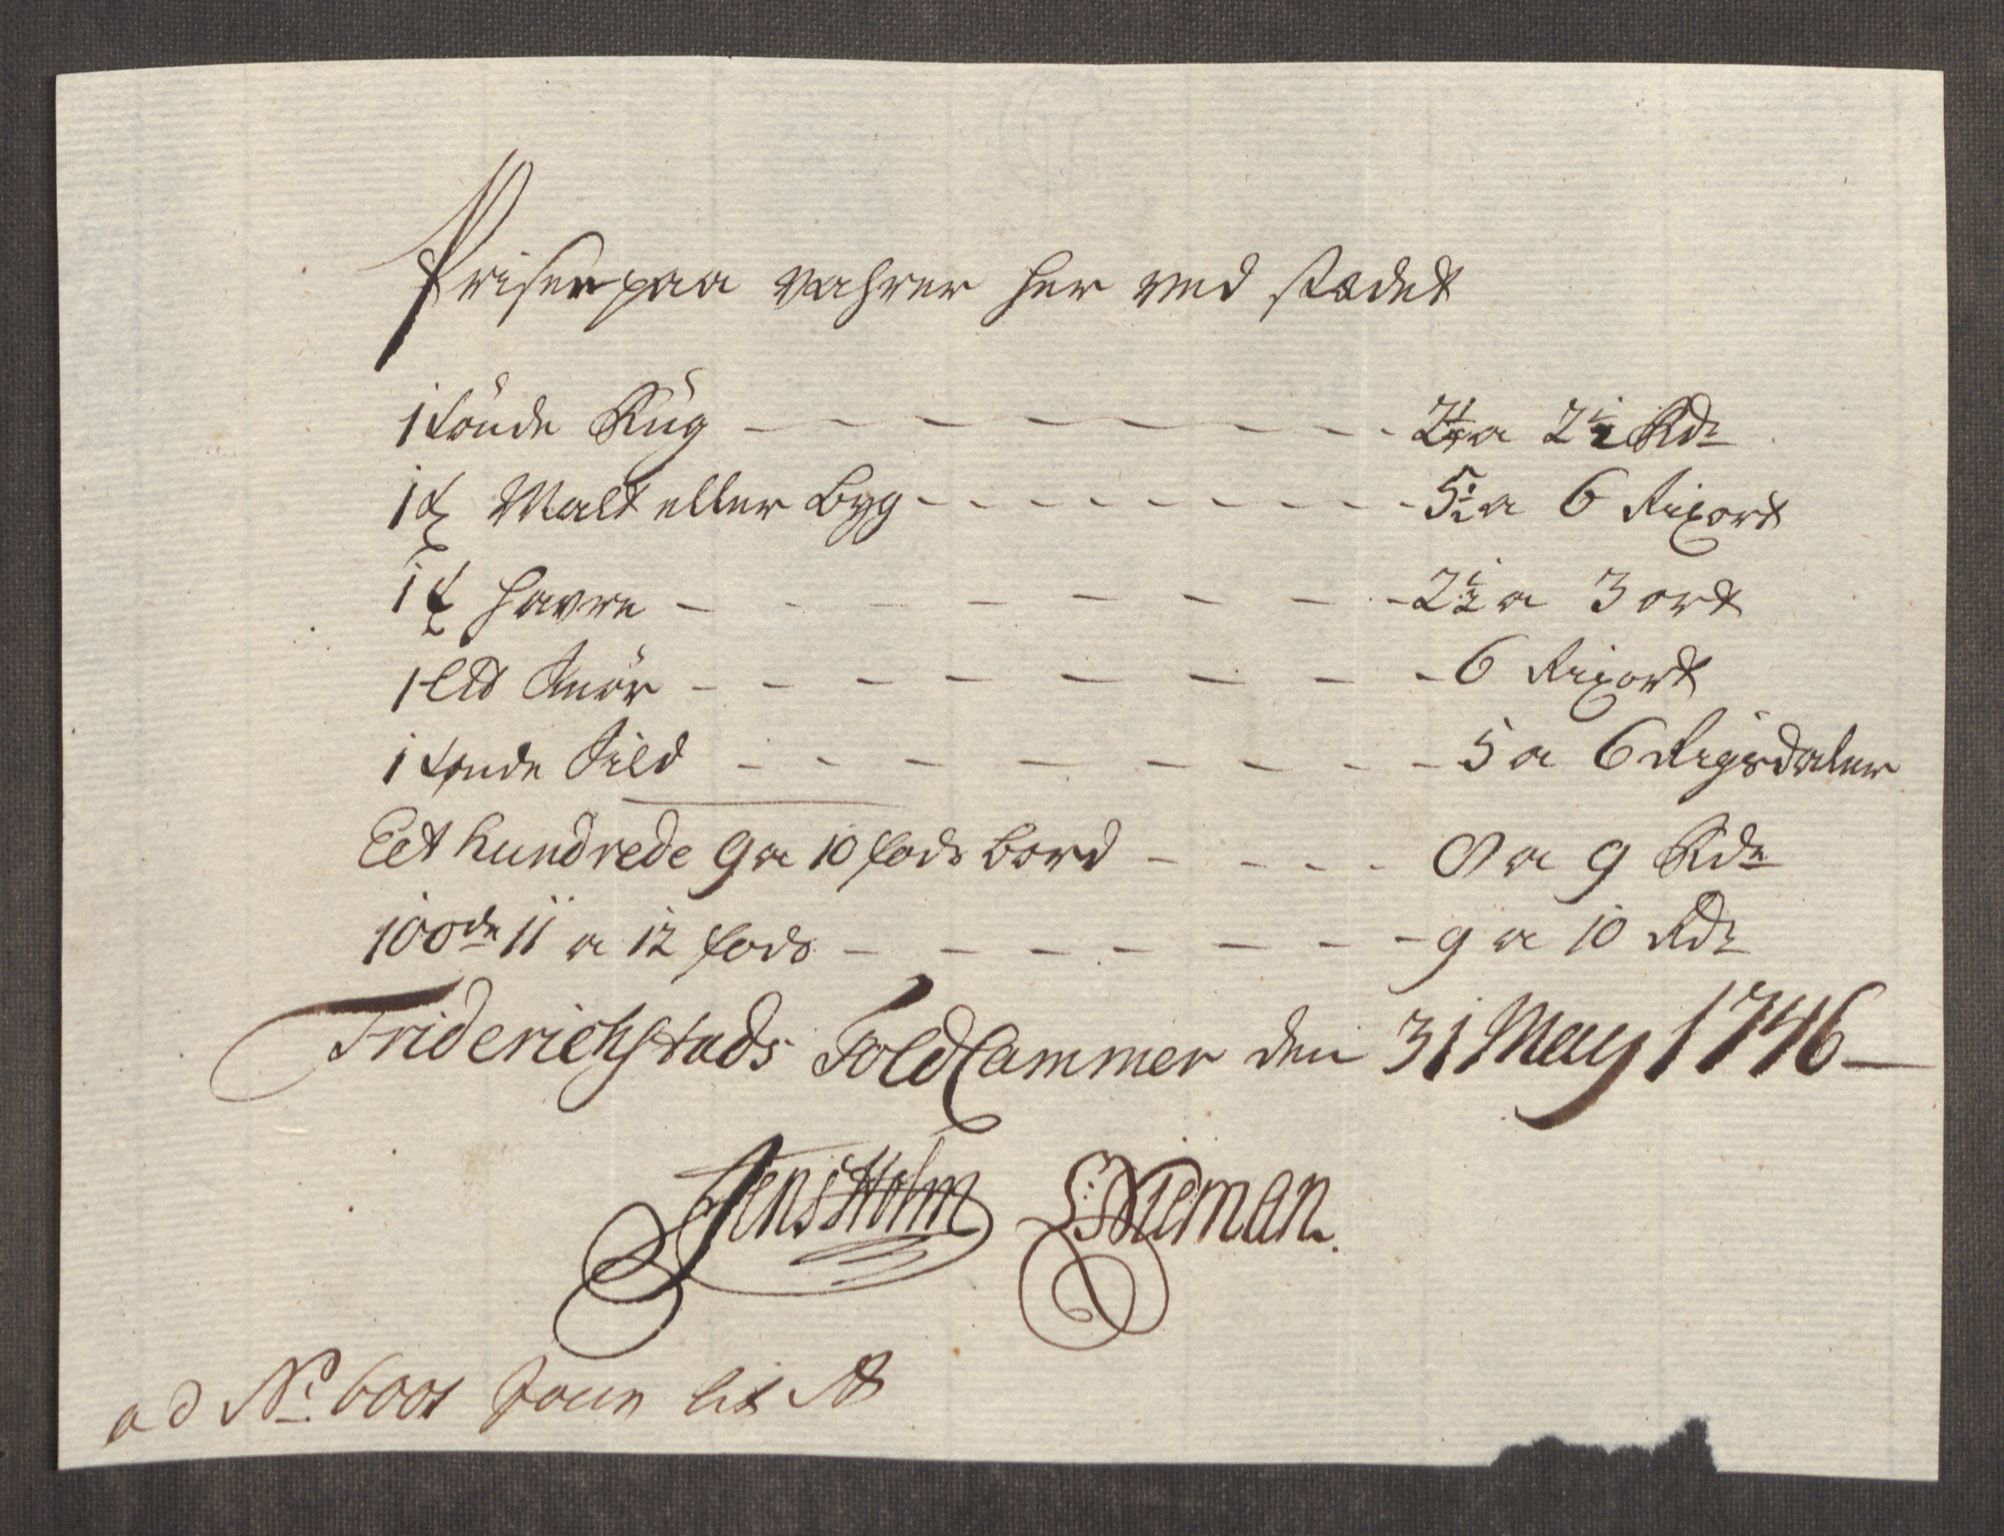 Priser paa vahrer her ved stædet
1 tönde Rúg - - - - - - - - 2¼ a 2½ Rdr
1 t Malt eller Byg - - - - - - - - 5½ a 6 Rixort
1 t Havre - - - - - - - - 2½ a 3 ort
1 L℔ Smör - - - - - - - - 6 Rixort
1 tønde Sild - - - - - - - - 5 a 6 Rigsdaler
Eet hundrede 9 a 10 fods bord - - - - 8 a 9 Rdr
100de 11 a 12 fods - - - - - - - 9 a 10 Rdr
Friderichstads Told Cammer den 31 May 1746
Jens Holm S: Nieman.
ad No. 6001 Journ lit A